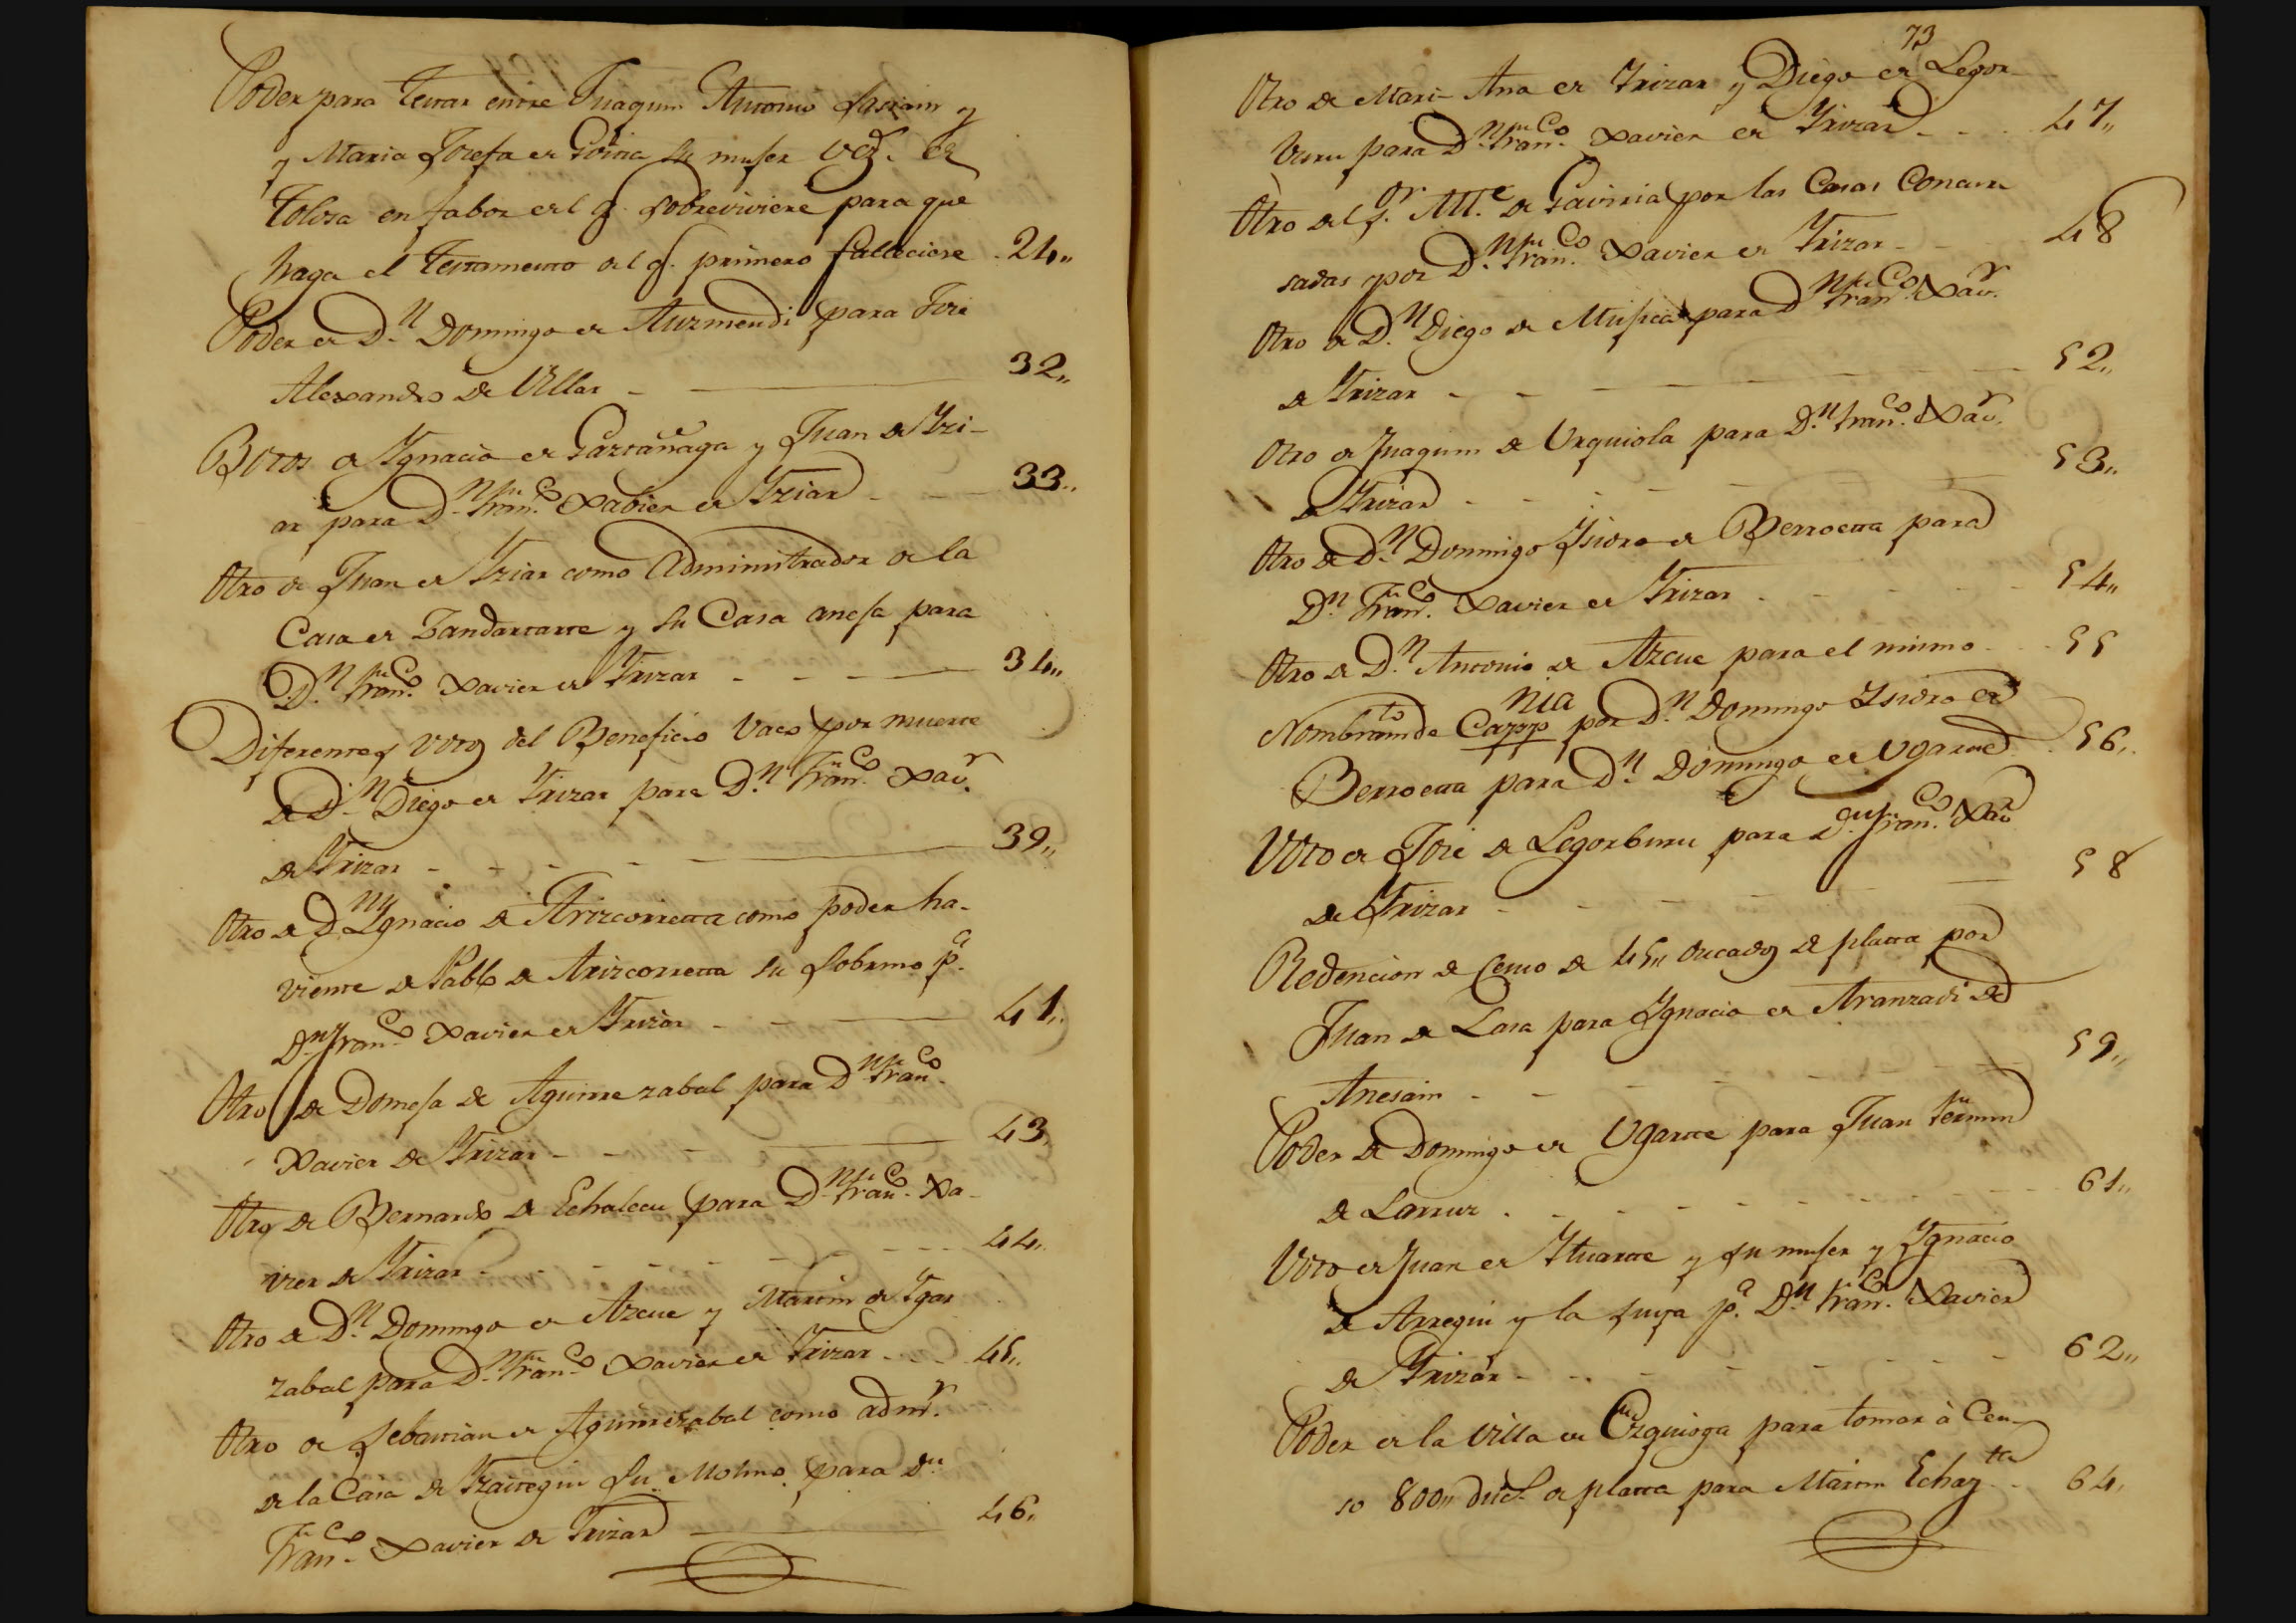 Poder para testar entre Juaquin Antonio Sasiain y
y Maria Josefa de Goiria su muger vez.s de
Tolosa en fabor del q. sobreviviere para que
haga el testamento del q. primero falleciere . 24,,
Poder de D.n Domingo de Auzmendi para José
Alexandro de Villar - 32,,
Botos de Ygnacio de Gartañaga y Juan de Yzi-
ar para D.n Fran.co Xabier de Yziar - - - 33,,
Otro de Juan de Yziar como Administrador de la
Casa de Zandartarte y su Casa anesa para
D.n Fran.co Xavier de Yrizar - - - 34,,
Diferentes votos del Beneficio Vaco por muerte
de D.n Diego de Yrizar para D.n Fran.co Xav.r
de Yrizar - - - - 39,,
Otro de D.n Ygnacio de Arizcorreta como poder ha-
viente de Pablo de Arizcorreta su sobrino p.a
D.n Fran.co Xavier de Yrizar - - - 41,,
Otro de Domesa de Aguirrezabal para D.n Fran.co
Xavier de Yrizar - - - 43,,
Otro de Bernardo de Echalecu para D.n Fran.co Xa-
vier de Yrizar - - - - 44,,
Otro de D.n Domingo de Azcue y Martin de Ygar
zabal para D.n Fran.co Xavier de Yrizar - - - 45,,
Otro de Sebastian de Aguirrezabal como adm.r
de la Casa de Yzaitegui su Molino, para D.n
Fran.co Xavier de Yrizar 46,,
73
Otro de Mari- Ana de Yrizar y Diego de Legor-
buru para D.n Fran.co Xavier de Yrizar - - - 47,,
Otro del s.or M.e de Gaviria por las Casas Concur
sadas por D.n Fran.co Xavier de Yrizar - - 48
Otro de D.n Diego de Mugica para D.n Fran.co Xav.r
de Yrizar - - - - 52,,
Otro de Juaquin de Urquiola para D.n Fran.co Xav.r
de Yrizar - - - - 53,,
Otro de D.n Domingo Ysidro de Berroeta para
D.n Fran.co Xavier de Yrizar - - - - 54,,
Otro de D.n Antonio de Azcue para el mismo - - 55
Nombram.to de Capp.nia por D.n Domingo Isidro de
Berroeta para D.n Domingo de Ugarte . 56,,
Voto de José de Legorburu para D.n Fran.co Xav.r
de Yrizar - - - - 58
Redencion de Censo de 45,, ducados de platta por
Juan de Lasa para Ygnacio de Aranzadi de
Anesain - - - - 59,,
Poder de Domingo de Ugarte para Juan Fermin
de Larruz . - - - - 61,,
Voto de Juan de Ytuarte y su muger y Ygnacio
de Arregui y la suya p.a D.n Fran.co Xavier
de Yrizar - - - - 62,,
Poder de la Villa de Ezquioga para tomar à Cen-
so 800,, duc.s de platta para Martin Echaz.ta - - 64,